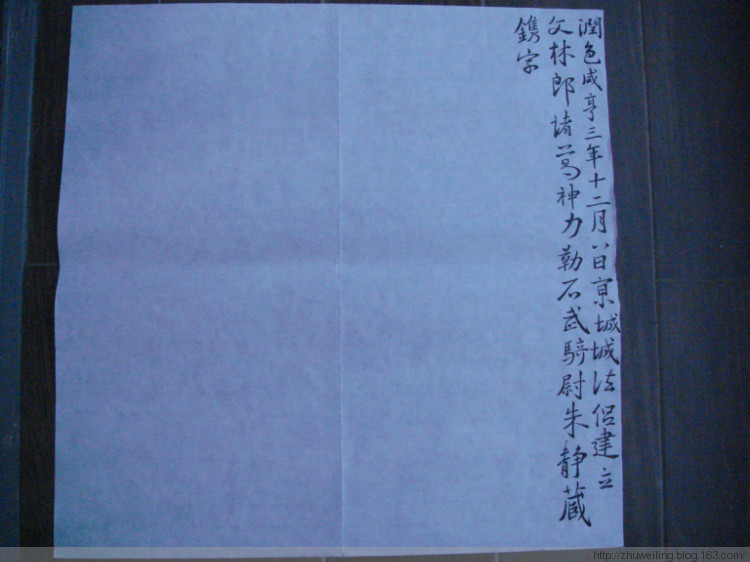 潤色咸亨三年十二月八日京城城法侣建立
文林郎諸葛神力勒石武騎尉朱静藏
鐫字
http://zhuweiling.blog.163.com/